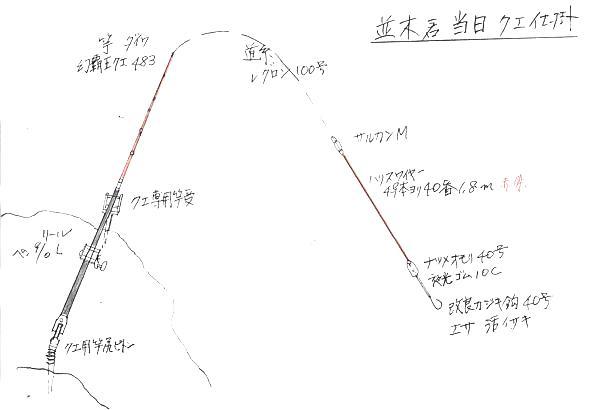 並木君 当日 クエ仕掛
竿 ダイワ
幻覇王クエ 483
道糸
レグロン 100号
サルカンM
ハリスワイヤー
49本ヨリ 40番 1.8m
クエ専用竿受
リール
ペン 9/0 L
ナツメオモリ 40号
夜光ゴム 10C
改良カジキ鈎 40号
エサ 活イサキ
クエ用竿尻ピトン